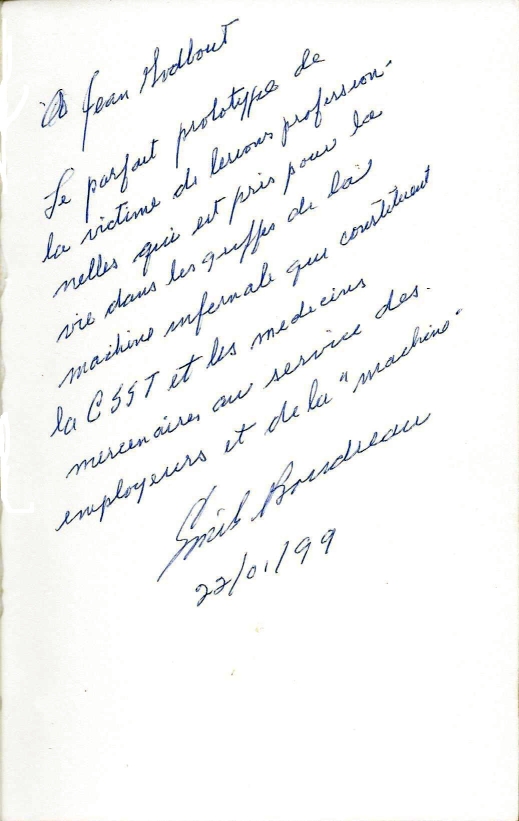 à Jean Godbout
Le parfait prototype de
la victime de lésions profession-
nelles qui est pris pour la
vie dans les griffes de la
machine infernale que constituent
la CSST et les medecins
mercenaires au service des
employeurs et de la "machine"
Émile Boudreau
22/01/99